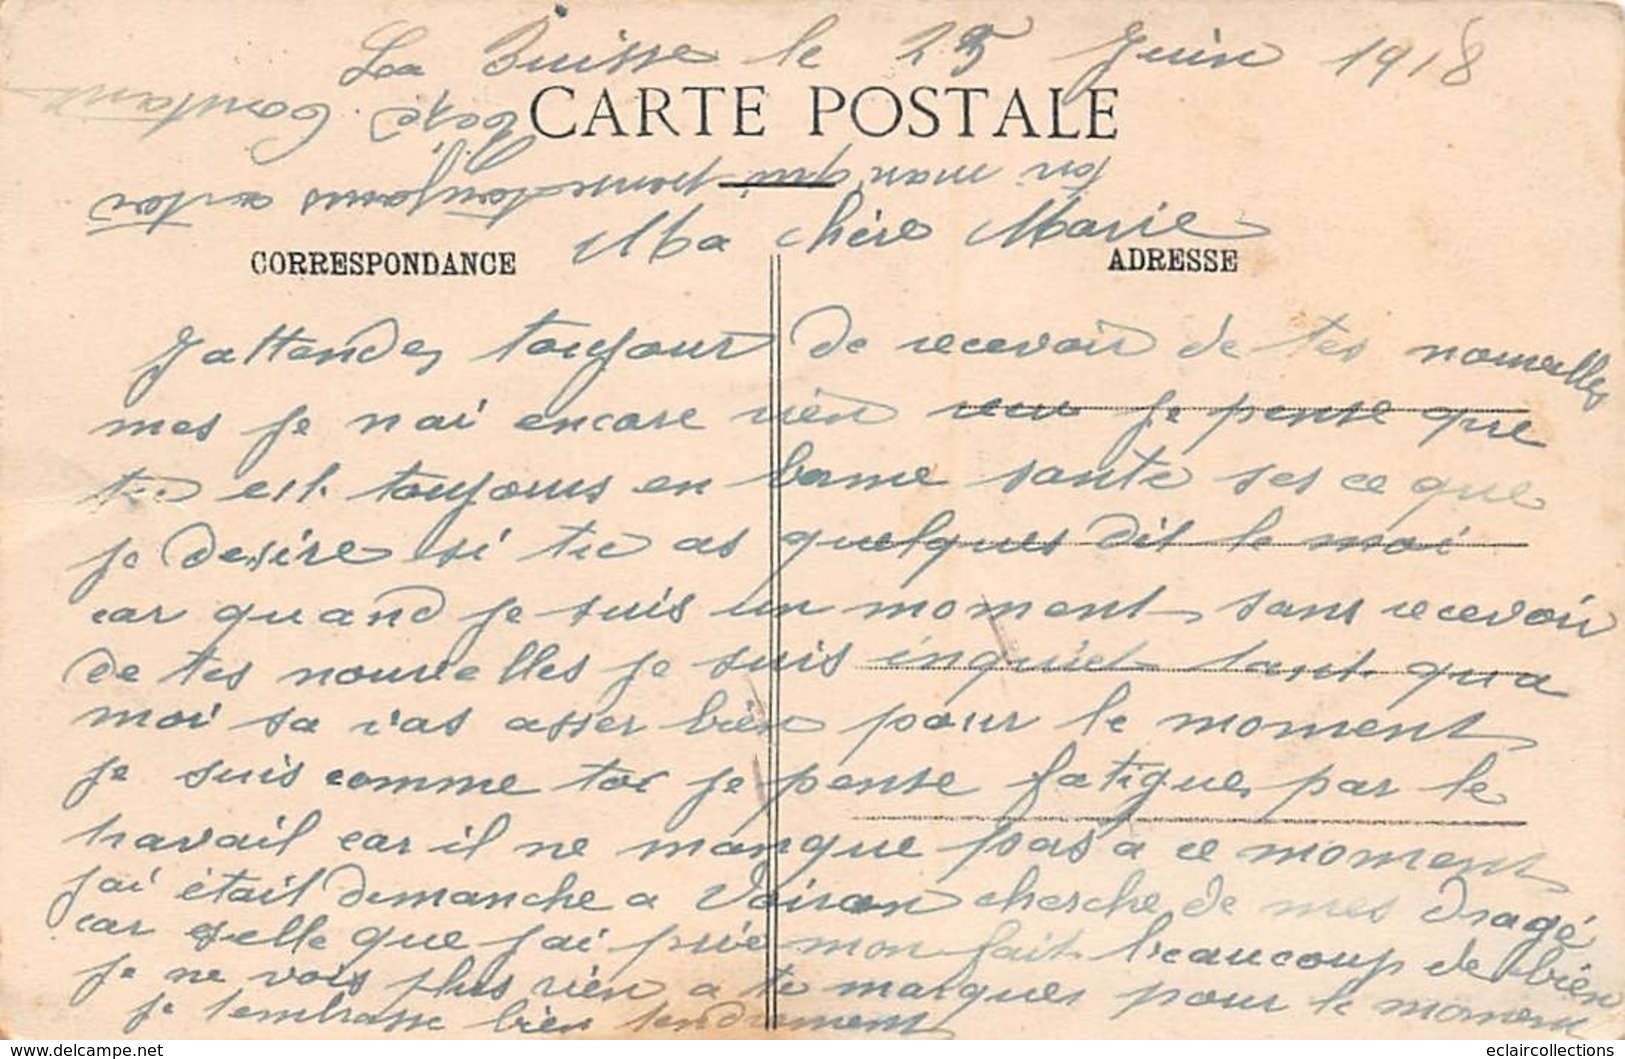 La Buisse le 25 Juin 1918
CARTE POSTALE
Ma chère Marie
CORRESPONDANCE
ADRESSE
J'attendes toujour de recevoir de tes nouvelles
mes je n'ai encore rien je pense que
tu est toujours en bonne santé ses ce que
je desire si tu as quelques dit le moi
car quand je suis un moment sans recevoir
de tes nouvelles je suis inquiet tant qua
moi sa vas asser bien pour le moment
je suis comme toi je pense fatigue par le
travail car il ne manque pas a ce moment
j'ai était demanche a Voiron cherche de mes dragé
car selle que j'ai prie mon fait beaucoup de bien
je ne vois plus rien a te marques pour le moment
je t'embrasse bien tendrement
ton mari qui pense toujours a toi
Constant
eclaircollections